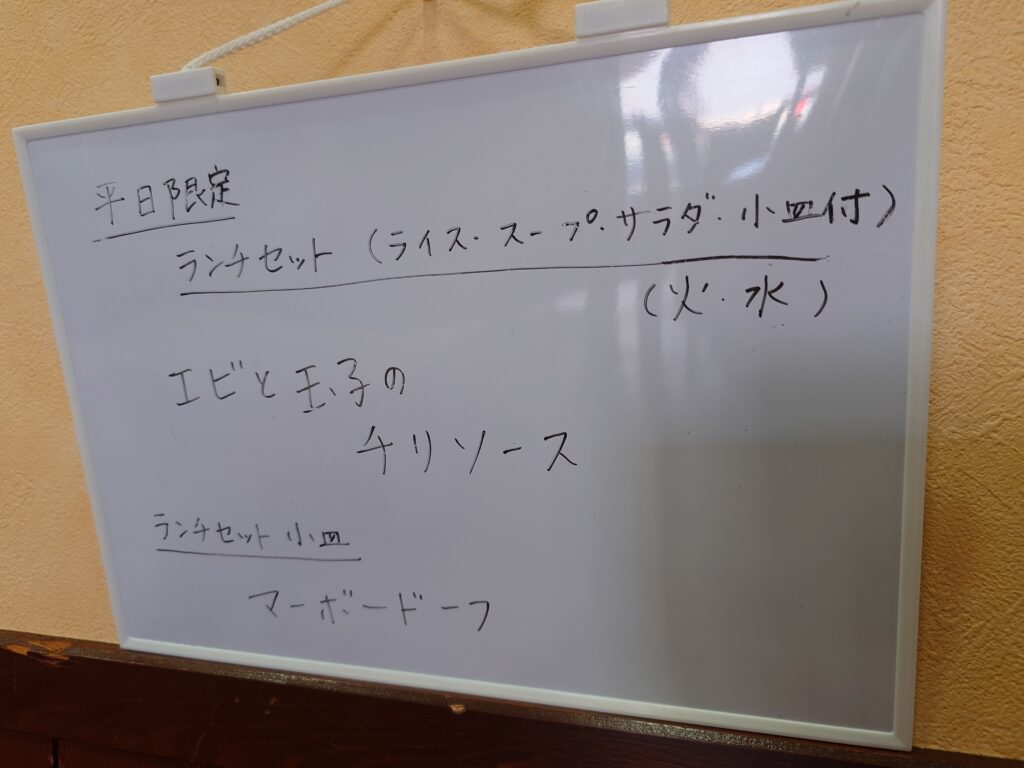 平日限定
ランチセット（ライス・スープ・サラダ・小皿付）
（火・水）
エビと玉子の
チリソース
ランチセット小皿
マーボードーフ